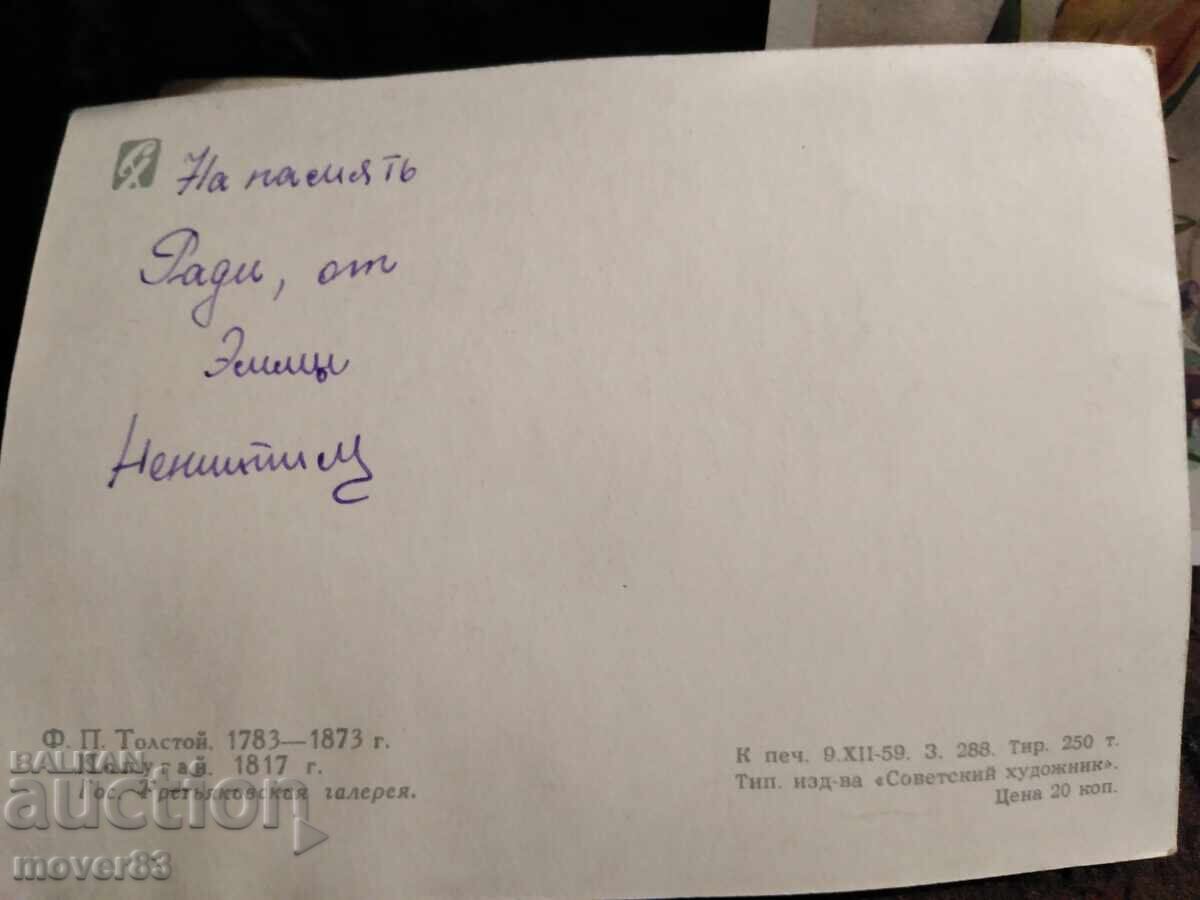 На память
Ради, от
Эммы
Ф. П. Толстой. 1783—1873 г.
Попугай. 1817 г.
Гос. Третьяковская галерея.
К печ. 9.XII-59. З. 288. Тир. 250 т.
Тип. изд-ва «Советский художник».
Цена 20 коп.
BALKAN
auction
mover83